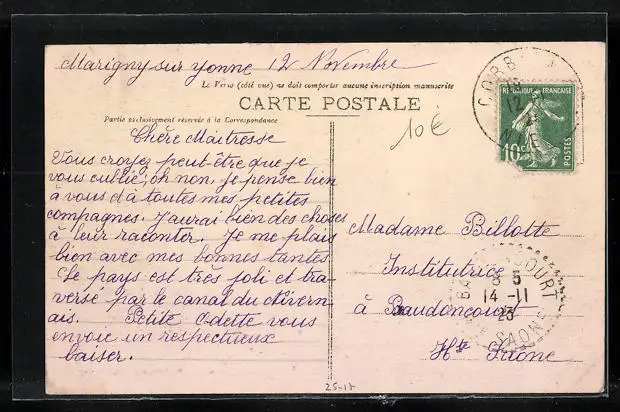 Marigny sur Yonne 12 Novembre
Le Verso (côté vue) ne doit comporter aucune inscription manuscrite
CARTE POSTALE
Partie exclusivement réservée à la Correspondance
10€
Chère Maîtresse
Vous croyez peut-être que je
vous oublie; oh non, je pense bien
à vous et à toutes mes petites
compagnes. J'aurai bien des choses
à leur raconter. Je me plais
bien avec mes bonnes tantes
Le pays est très joli et tra-
versé par le canal du Nivern
ais. Petite Odette vous
envoie un respectueux
baiser.
REPUBLIQUE FRANÇAISE
10c
POSTES
CORB
12
Madame Billotte
Institutrice
à Baudoncourt
Hte Saône
BAUDONCOURT
8 5
14 -11
23
HTE SAONE
25-17